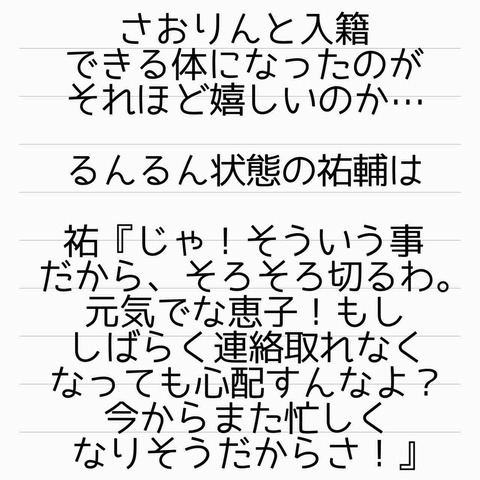 さおりんと入籍
できる体になったのが
それほど嬉しいのか…
るんるん状態の祐輔は
祐『じゃ！そういう事
だから、そろそろ切るわ。
元気でな恵子！もし
しばらく連絡取れなく
なっても心配すんなよ？
今からまた忙しく
なりそうだからさ！』